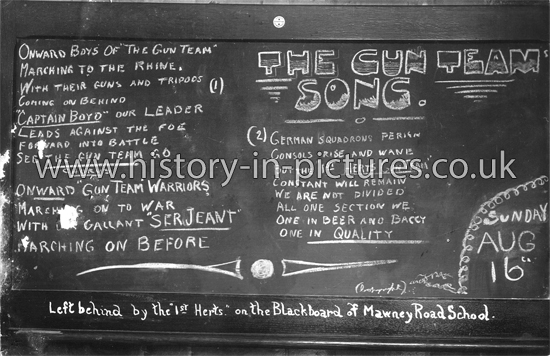 THE GUN TEAM'S
SONG.
ONWARD BOYS OF "THE GUN TEAM"
MARCHING TO THE RHINE.
WITH THEIR GUNS AND TRIPODS (1)
COMING ON BEHIND
"CAPTAIN BOYD" OUR LEADER
LEADS AGAINST THE FOE
FORWARD INTO BATTLE
SEE THE GUN TEAM GO
ONWARD "GUN TEAM WARRIORS
MARCHING ON TO WAR
WITH GALLANT "SERJEANT"
MARCHING ON BEFORE
(2) GERMAN SQUADRONS PERISH
CONSOLS RISE AND WANE
BUT THE
CONSTANT WILL REMAIN
WE ARE NOT DIVIDED
ALL ONE SECTION WE
ONE IN BEER AND BACCY
ONE IN QUALITY
SUNDAY
AUG
16"
www.history-in-pictures.co.uk
Left behind by the "1st Herts." on the Blackboard of Mawney Road School.